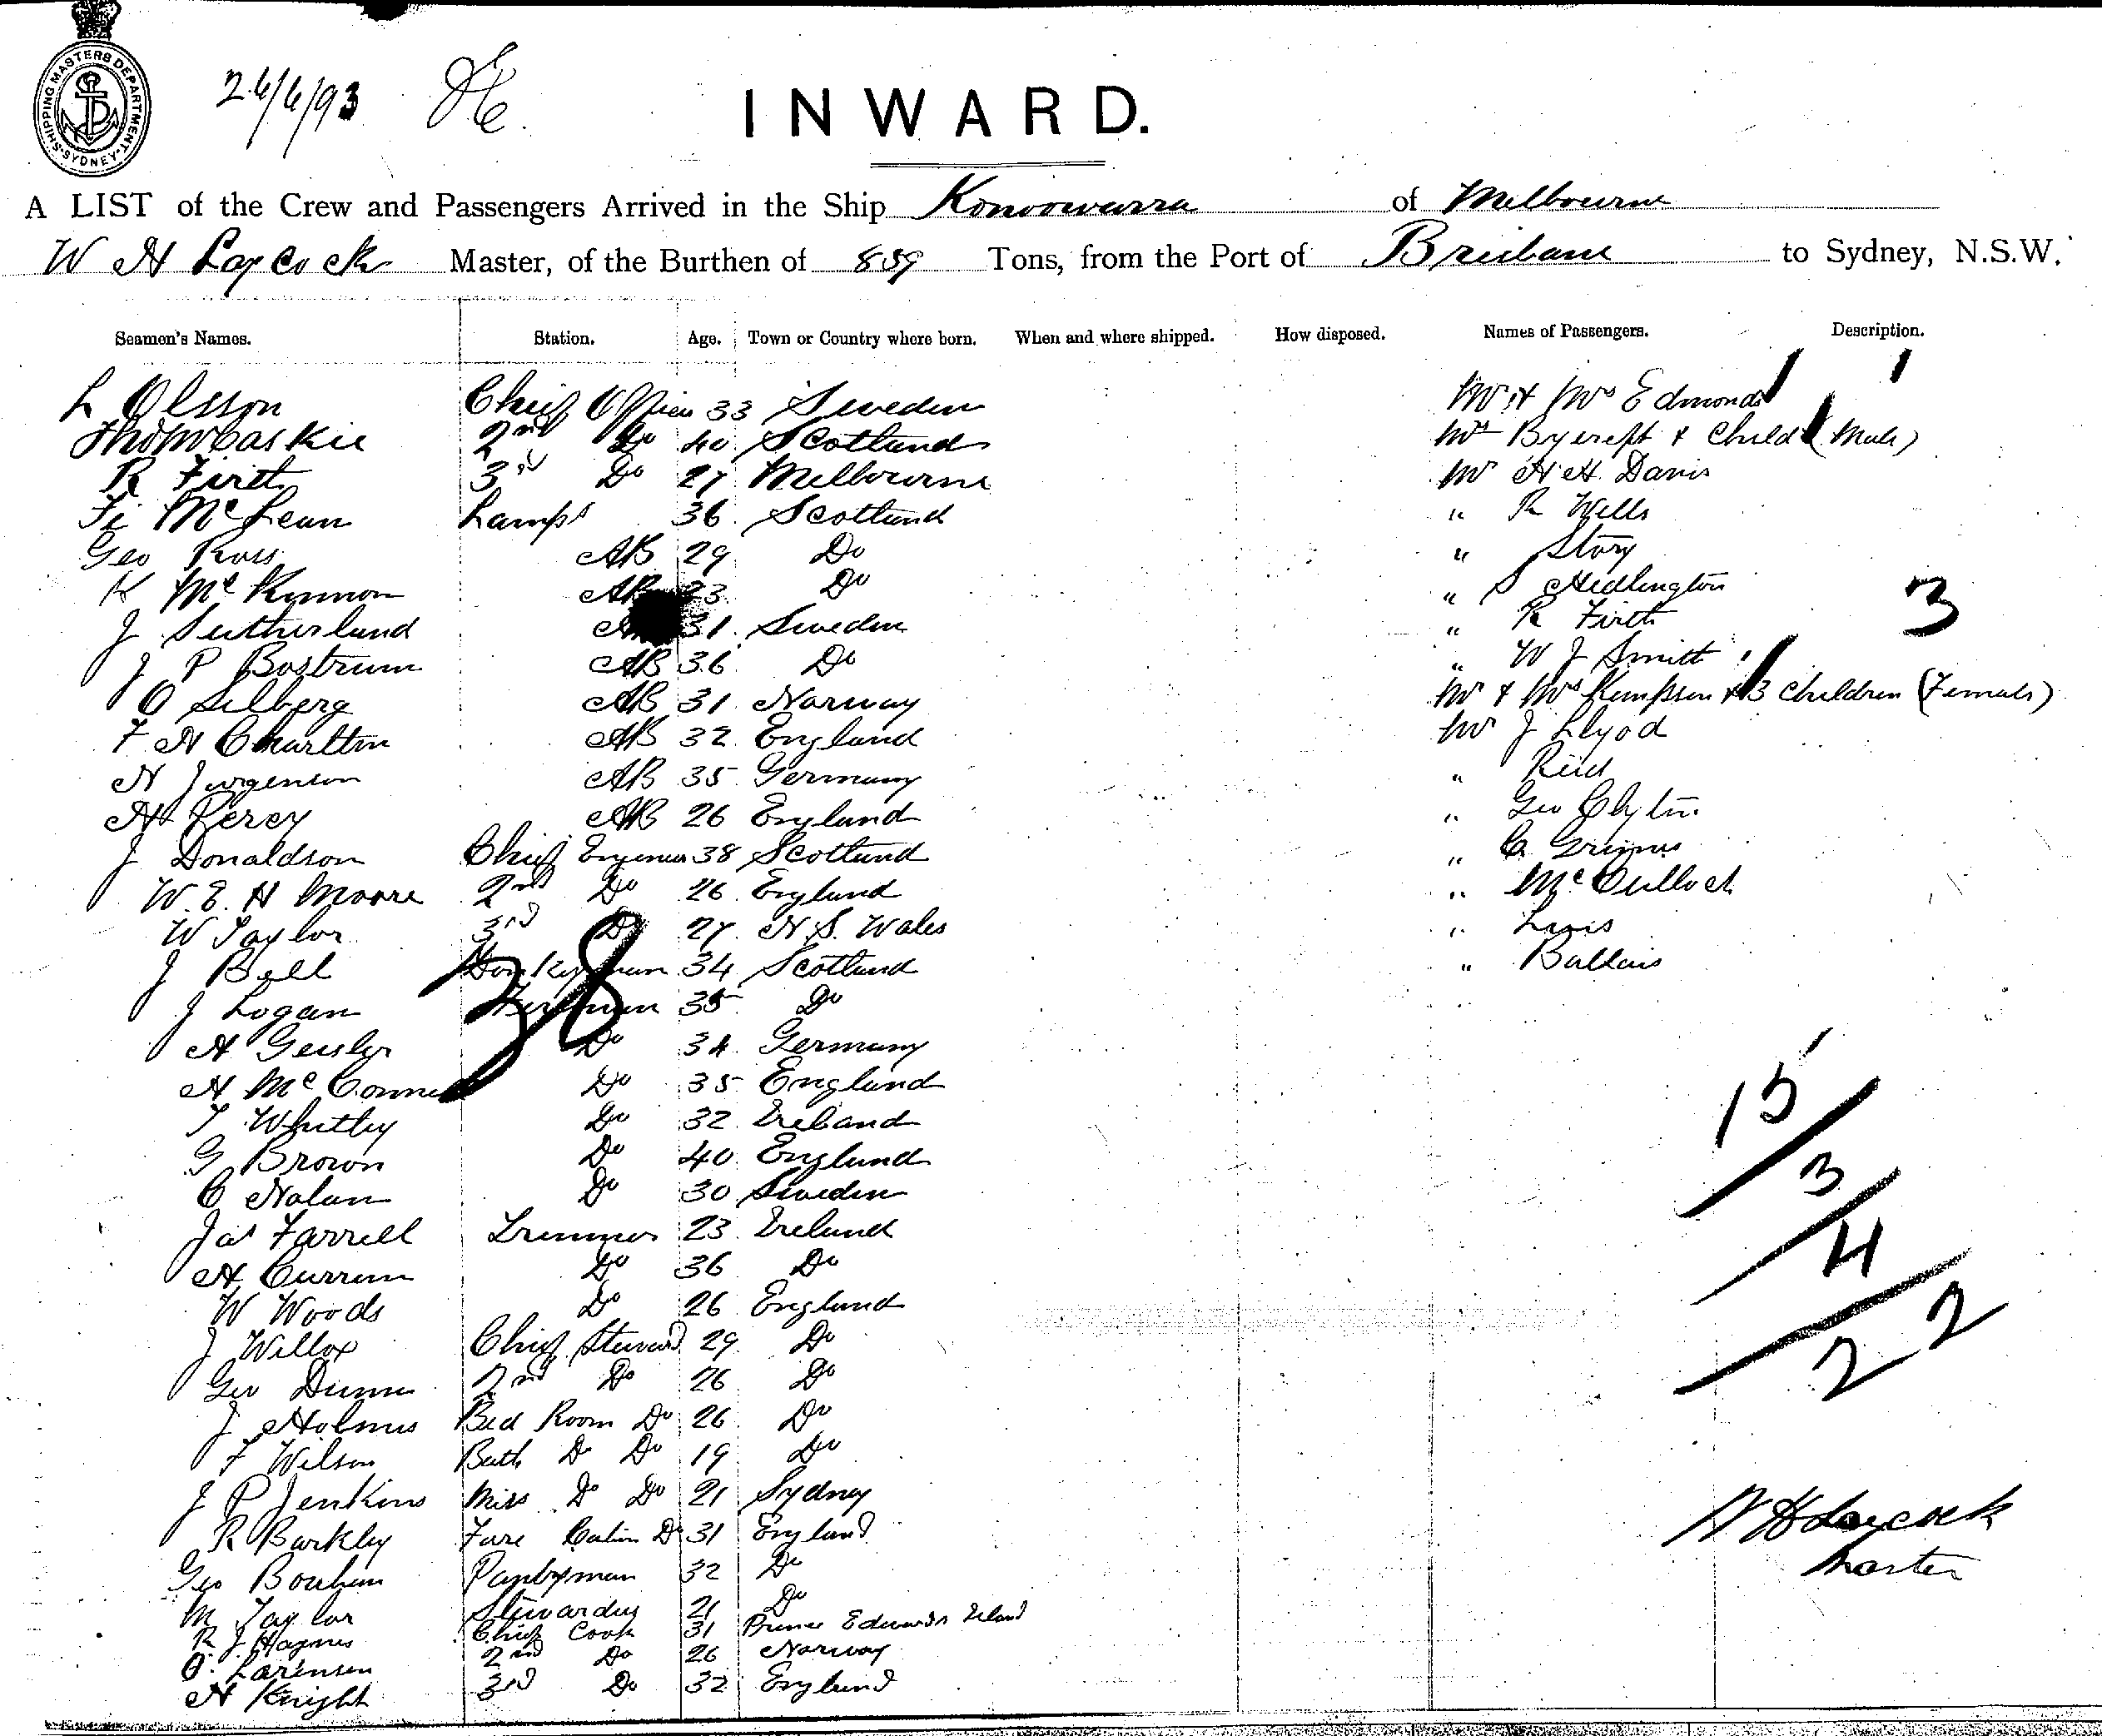 SHIPPING MASTERS DEPARTMENT SYDNEY
26/6/93
INWARD.
A LIST of the Crew and Passengers Arrived in the Ship Konoowarra of Melbourne
W H Laycock Master, of the Burthen of 859 Tons, from the Port of Brisbane to Sydney, N.S.W.
Seamen's Names. Station. Age. Town or Country where born. When and where shipped. How disposed. Names of Passengers. Description.
L Olsson Chief Officer 33 Sweden Mr & Mrs Edmonds 1
Thom Caskie 2nd Do 40 Scotland Mrs Bycroft & Child (Male)
R Firth 3rd Do 27 Melbourne Mr H H Davis
McLean Lamps 36 Scotland " R Wells
Geo Ross AB 29 Do " Story
K McKinnon AB 23 Do " S Hedlington
J Sutherland 31 Sweden " R Firth 3
J P Bostrum AB 36 Do " W J Smith
O Silberg AB 31 Norway Mr & Mrs Kempson & 3 Children (Females)
F H Charlton AB 32 England Mr J Llyod
H Jurgenson AB 35 Germany " Reid
H Percy AB 26 England " Geo
J Donaldson Chief Engineer 38 Scotland " C Grimes
W. E. H Moore 2nd Do 26 England " McCulloch
W Taylor 3rd Do 27 N S. Wales "
J Bell Donkeyman 34 Scotland "
38
J Logan Fireman 35 Do
H Geisler Do 34 Germany
H McConnel Do 35 England 15
T Whitley Do 32 Ireland
G Brown Do 40 England 3
C Nolan Do 30 Sweden
Jas Farrell Trimmer 23 Ireland 4
H Curran Do 36 Do
W Woods Do 26 England 22
J Willox Chief Steward 29 Do
Geo Dunn 2nd Do 26 Do
J Holmes Bed Room Do 26 Do
F Wilson Bath Do Do 19 Do
J P Jenkins Miss Do Do 21 Sydney W H Laycock
R Barkley Fore Cabin Do 31 England Master
Geo Bonham Pantryman 32 Do
M Taylor Stewardess 21 Do
R J Haynes Chief Cook 31 Prince Edwards Island
O. Larensen 2nd Do 26 Norway
H Knight 3rd Do 32 England